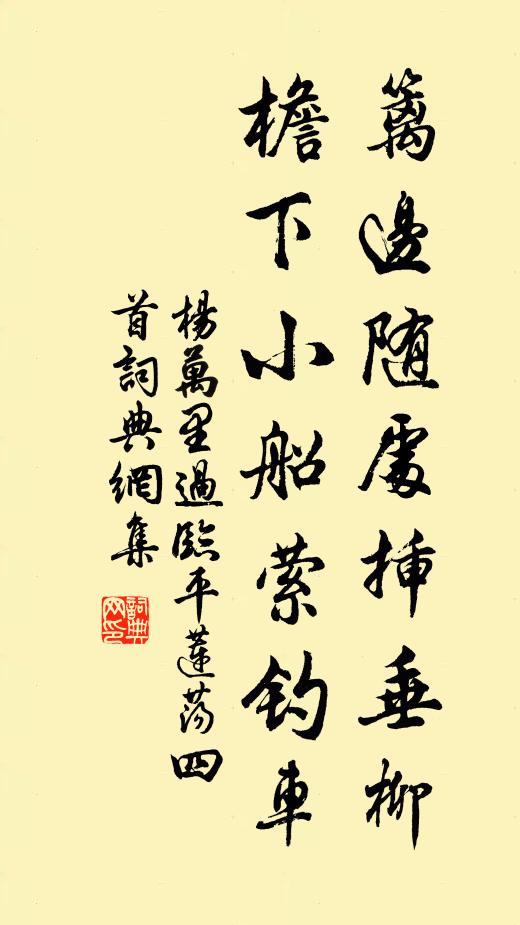 籬邊隨處插垂柳
檐下小船縈釣車
楊萬里過臨平蓮蕩四
首詞典網集
詞典
网印